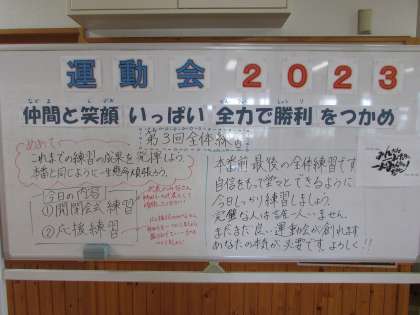 運動会 2023
仲間と笑顔 いっぱい 全力で勝利 をつかめ
第3回全体練習
めあて
これまでの練習の成果を発揮しよう。
本番と同じように一生懸命頑張ろう。
今日の内容
①開閉会式練習
②応援練習
本番前 最後の全体練習です
自信をもって堂々とできるように
今日しっかり練習しましょう。
完璧な人は誰一人いません。
まだまだ良い運動会が創れます
あなたの本気が必要です。よろしく!!